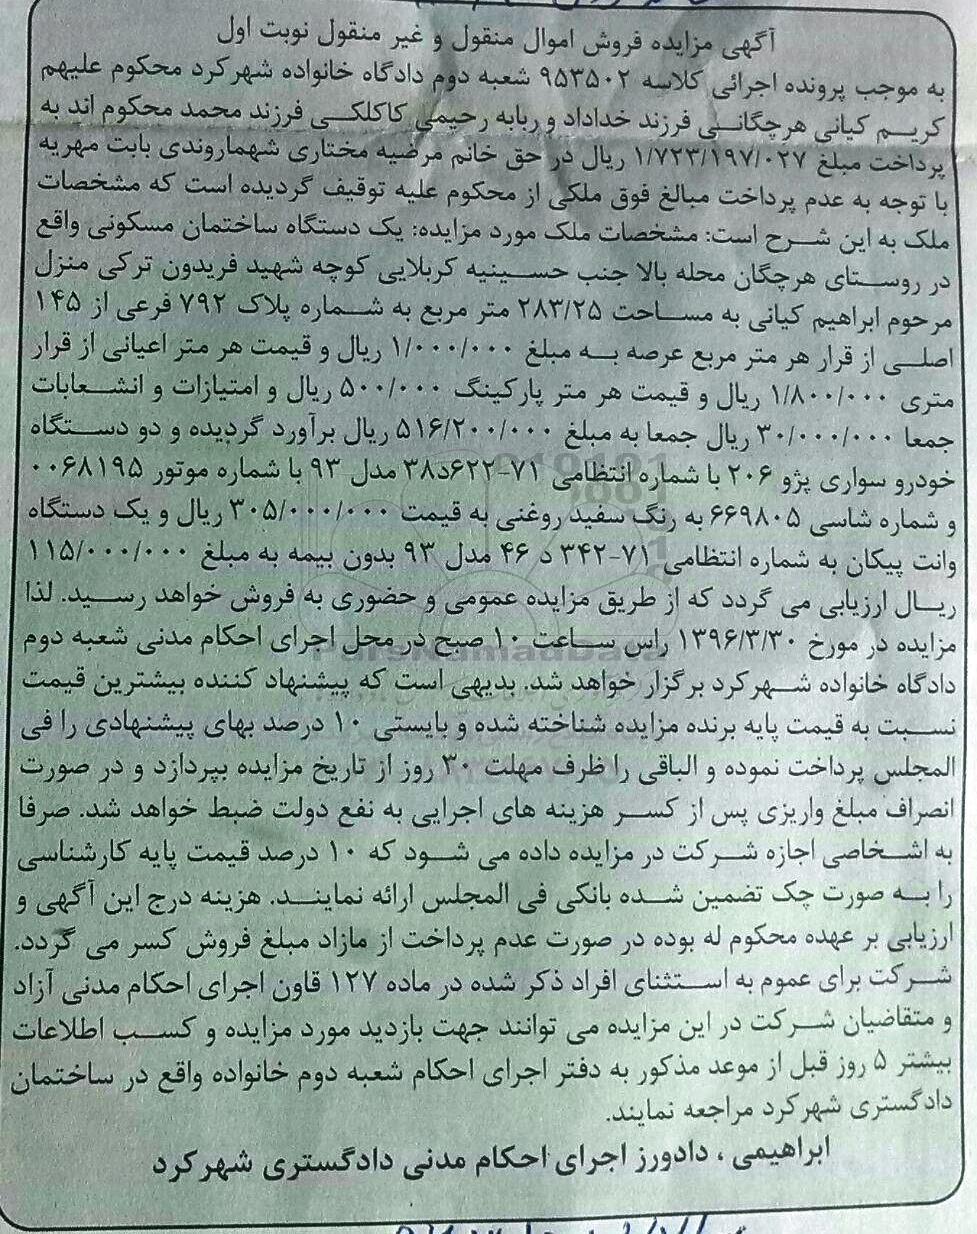 آگهی مزایده فروش اموال منقول و غیر منقول نوبت اول
به موجب پرونده اجرائی کلاسه ۹۵۳۵۰۲ شعبه دوم دادگاه خانواده شهرکرد محکوم علیهم
کریم کیانی هرچگانی فرزند خداداد و ربابه رحیمی کاکلکی فرزند محمد محکوم اند به
پرداخت مبلغ ۱/۷۲۳/۱۹۷/۰۲۷ ریال در حق خانم مرضیه مختاری شهماروندی بابت مهریه
با توجه به عدم پرداخت مبالغ فوق ملکی از محکوم علیه توقیف گردیده است که مشخصات
ملک به این شرح است: مشخصات ملک مورد مزایده: یک دستگاه ساختمان مسکونی واقع
در روستای هرچگان محله بالا جنب حسینیه کربلایی کوچه شهید فریدون ترکی منزل
مرحوم ابراهیم کیانی به مساحت ۲۸۳/۲۵ متر مربع به شماره پلاک ۷۹۲ فرعی از ۱۴۵
اصلی از قرار هر متر مربع عرصه به مبلغ ۱/۰۰۰/۰۰۰ ریال و قیمت هر متر اعیانی از قرار
متری ۱/۸۰۰/۰۰۰ ریال و قیمت هر متر پارکینگ ۵۰۰/۰۰۰ ریال و امتیازات و انشعابات
جمعا ۳۰/۰۰۰/۰۰۰ ریال جمعا به مبلغ ۵۱۶/۲۰۰/۰۰۰ ریال برآورد گردیده و دو دستگاه
خودرو سواری پژو ۲۰۶ با شماره انتظامی ۷۱-۶۲۲د۳۸ مدل ۹۳ با شماره موتور ۰۰۶۸۱۹۵
و شماره شاسی ۶۶۹۸۰۵ به رنگ سفید روغنی به قیمت ۳۰۵/۰۰۰/۰۰۰ ریال و یک دستگاه
وانت پیکان به شماره انتظامی ۷۱-۳۴۲ د ۴۶ مدل ۹۳ بدون بیمه به مبلغ ۱۱۵/۰۰۰/۰۰۰
ریال ارزیابی می گردد که از طریق مزایده عمومی و حضوری به فروش خواهد رسید. لذا
مزایده در مورخ ۱۳۹۶/۳/۳۰ راس ساعت ۱۰ صبح در محل اجرای احکام مدنی شعبه دوم
دادگاه خانواده شهرکرد برگزار خواهد شد. بدیهی است که پیشنهاد کننده بیشترین قیمت
نسبت به قیمت پایه برنده مزایده شناخته شده و بایستی ۱۰ درصد بهای پیشنهادی را فی
المجلس پرداخت نموده و الباقی را ظرف مهلت ۳۰ روز از تاریخ مزایده بپردازد و در صورت
انصراف مبلغ واریزی پس از کسر هزینه های اجرایی به نفع دولت ضبط خواهد شد. صرفا
به اشخاصی اجازه شرکت در مزایده داده می شود که ۱۰ درصد قیمت پایه کارشناسی
را به صورت چک تضمین شده بانکی فی المجلس ارائه نمایند. هزینه درج این آگهی و
ارزیابی بر عهده محکوم له بوده در صورت عدم پرداخت از مازاد مبلغ فروش کسر می گردد.
شرکت برای عموم به استثنای افراد ذکر شده در ماده ۱۲۷ قاون اجرای احکام مدنی آزاد
و متقاضیان شرکت در این مزایده می توانند جهت بازدید مورد مزایده و کسب اطلاعات
بیشتر ۵ روز قبل از موعد مذکور به دفتر اجرای احکام شعبه دوم خانواده واقع در ساختمان
دادگستری شهرکرد مراجعه نمایند.
ابراهیمی ، دادورز اجرای احکام مدنی دادگستری شهرکرد
ParsNamadData